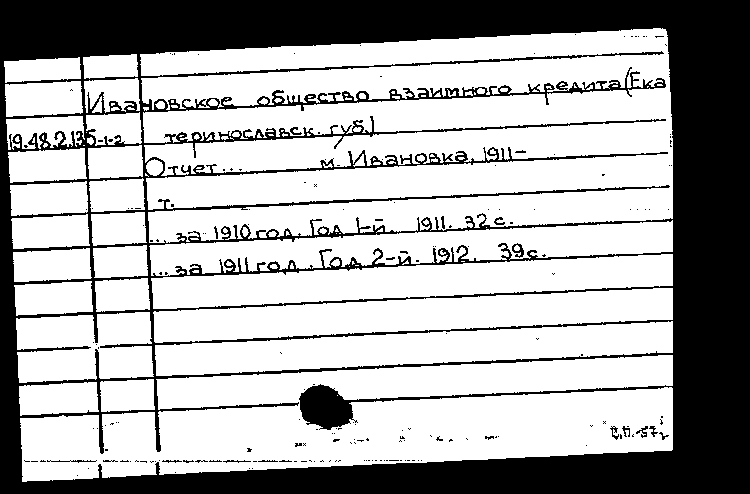 Ивановское общество взаимного кредита (Ека
19.48.2.135-1-2 теринославск. губ.)
Отчет... м. Ивановка, 1911-
т.
... за 1910 год. Год 1-й. 1911. 32 с.
... за 1911 год. Год 2-й. 1912. 39 с.